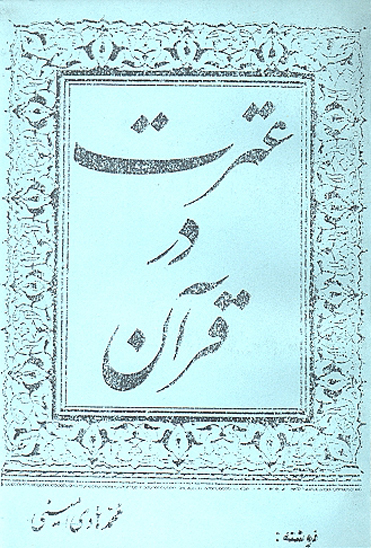 عترت
در
قرآن
نوشته: محمد هادی امینی